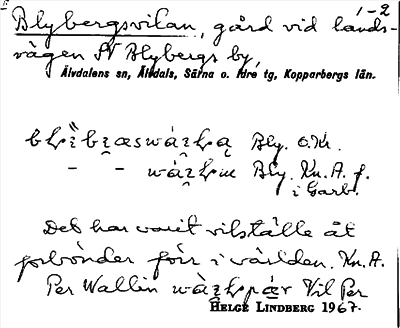 1-2
Blybergsvilan, gård vid lands-
vägen N Blybergs by,
Älvdalens sn, Älvdals, Särna o. Idre tg, Kopparbergs län.
Bly. O.Kr.
- - Bly. Kn. A. f.
i Garb.
Det har varit vilställe åt
forbönder förr i världen. Kn. A.
Per Wallin Vil Per
HELGE LINDBERG 1967.